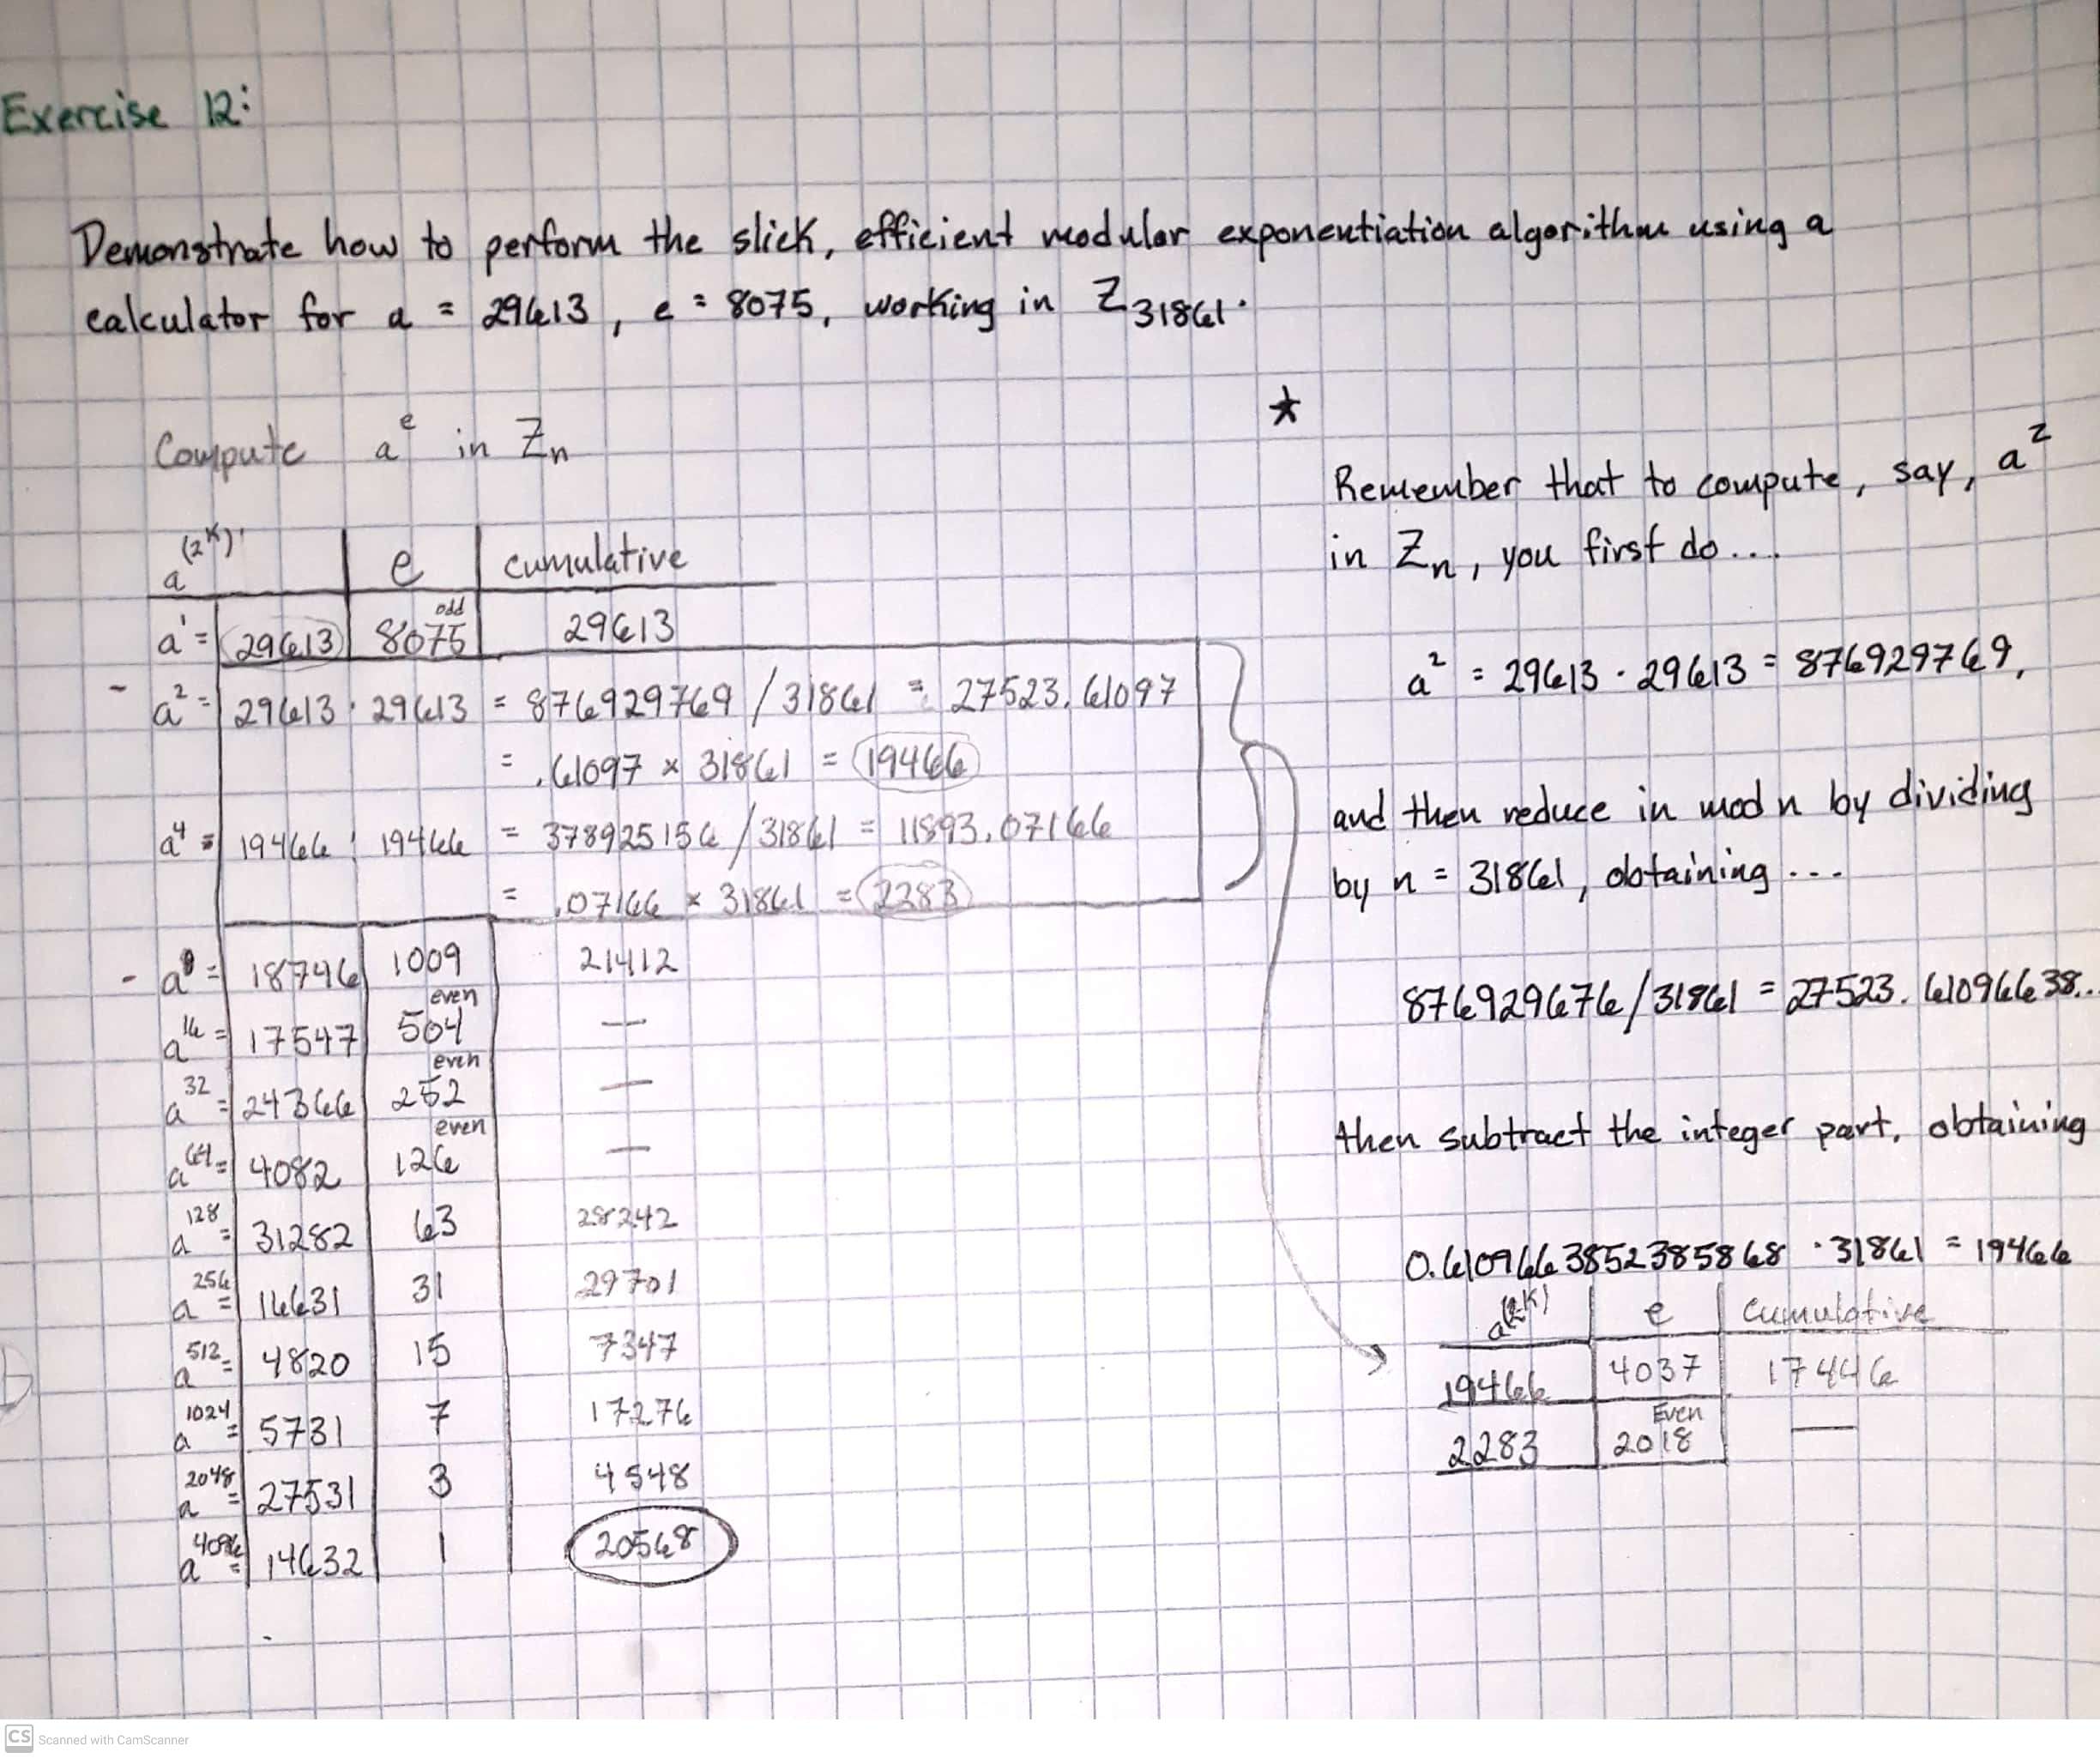 Exercise 12:
Demonstrate how to perform the slick, efficient modular exponentiation algorithm using a
calculator for a = 29613, e = 8075, working in Z₃₁₈₆₁.
Compute aᵉ in Zₙ
a^(2^K) e cumulative
a¹ = 29613 8075 odd 29613
a² = 29613 · 29613 = 876929769 / 31861 = 27523.61097
= .61097 × 31861 = 19466
a⁴ = 19466 · 19466 = 378925156 / 31861 = 11893.07166
= .07166 × 31861 = 2283
a⁸ = 18746 1009 21412
a¹⁶ = 17547 504 even —
a³² = 24366 252 even —
a⁶⁴ = 4082 126 even —
a¹²⁸ = 31282 63 28242
a²⁵⁶ = 16631 31 29701
a⁵¹² = 4820 15 7347
a¹⁰²⁴ = 5731 7 17276
a²⁰⁴⁸ = 27531 3 4548
a⁴⁰⁹⁶ = 14632 1 20568
*
Remember that to compute, say, a²
in Zₙ, you first do...
a² = 29613 · 29613 = 876929769,
and then reduce in mod n by dividing
by n = 31861, obtaining ...
876929676/31861 = 27523.61096638...
then subtract the integer part, obtaining
0.6109663852385868 · 31861 = 19466
a^(2^K) e Cumulative
19466 4037 17446
2283 2018 Even —
CS Scanned with CamScanner